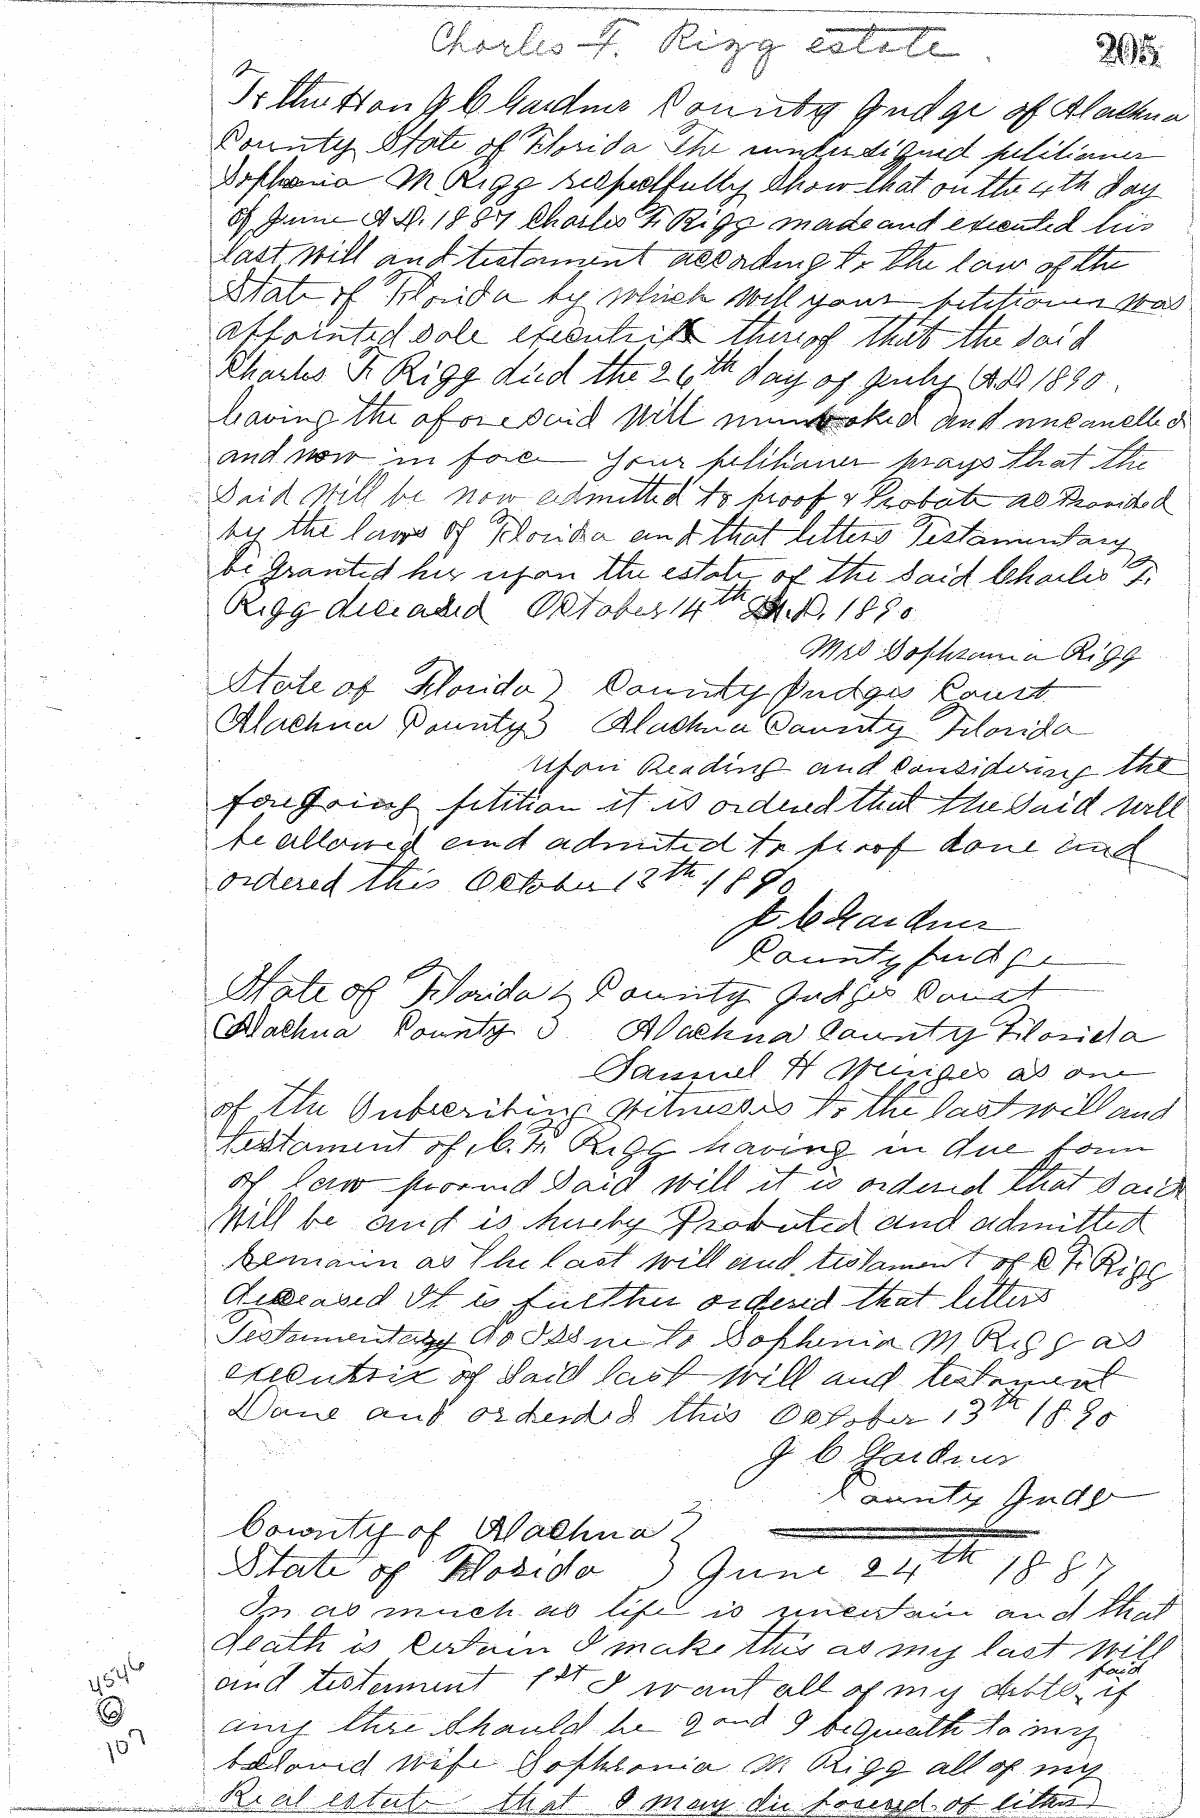 Charles F. Rigg estate
205
To the Hon J C Gardner County Judge of Alachua
County State of Florida The undersigned petitioner
Sophronia M Rigg respectfully show that on the 4th day
of June A.D. 1887 Charles F. Rigg made and executed his
last will and testament according to the law of the
State of Florida by which will your petitioner was
appointed sole executrix thereof that the said
Charles F. Rigg died the 26th day of July A.D 1890.
leaving the aforesaid will unrevoked and uncancelled
and now in force your petitioner prays that the
said will be now admitted to proof & Probate as Provided
by the laws of Florida and that letters Testamentary
be granted her upon the estate of the said Charles F.
Rigg deceased October 14th A.D. 1890
Mrs Sophronia Rigg
State of Florida } County Judges Court
Alachua County } Alachua County Florida
Upon Reading and considering the
foregoing petition it is ordered that the said will
be allowed and admited to proof done and
ordered this October 13th 1890
J C Gardner
County Judge
State of Florida } County Judges Court
Alachua County } Alachua County Florida
Samuel H as one
of the Subscribing Witnesses to the last will and
testament of C. F. Rigg having in due form
of law proved said will it is ordered that said
will be and is hereby Probated and admitted
remain as the last will and testament of C F. Rigg
deceased It is further ordered that letters
Testamentary do Issue to Sophenia M Rigg as
executrix of said last will and testament
Done and ordered this October 13th 1890
J C Gardner
County Judge
County of Alachua }
State of Florida } June 24th 1887
In as much as life is uncertain and that
death is certain I make this as my last will
and testament 1st I want all of my debts paid if
any thre should be 2and I bequeath to my
beloved wife Sophronia M Rigg all of my
Real estate that I may die posesed of either
4546
107